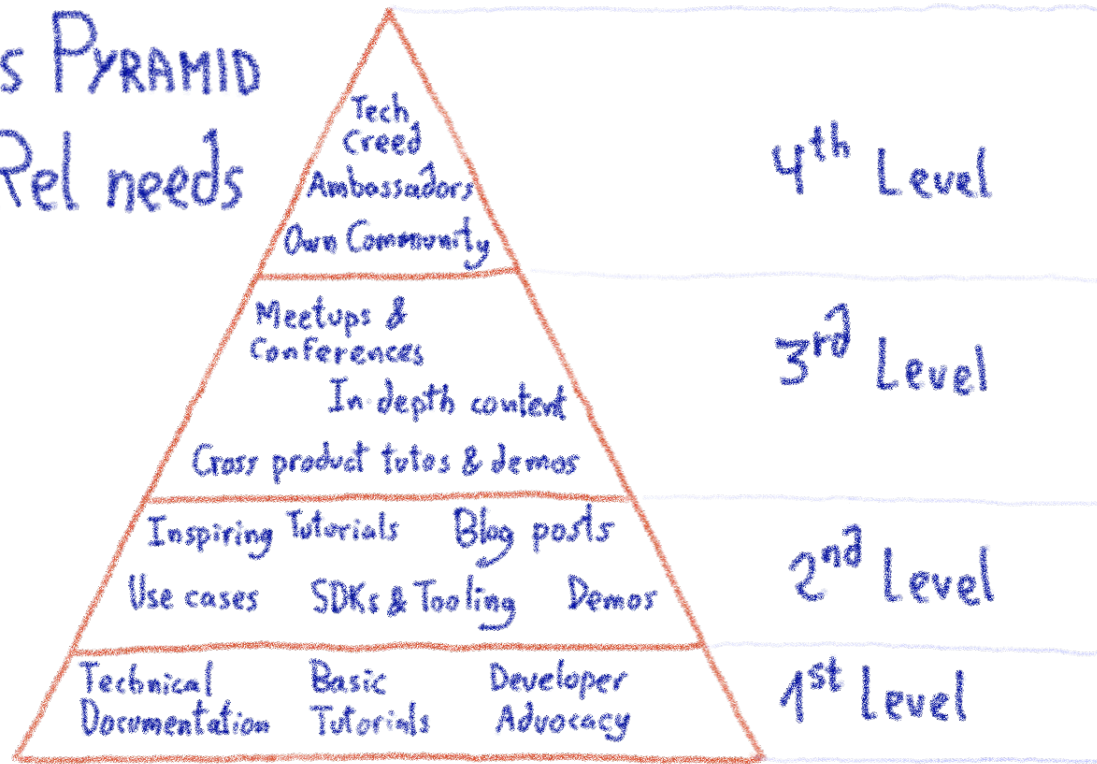 s PYRAMID
Rel needs
Tech
Creed
Ambassadors
Own Community
4th Level
Meetups &
Conferences
In-depth content
Cross product tutos & demos
3rd Level
Inspiring Tutorials Blog posts
Use cases SDKs & Tooling Demos
2nd Level
Technical Basic Developer
Documentation Tutorials Advocacy
1st Level